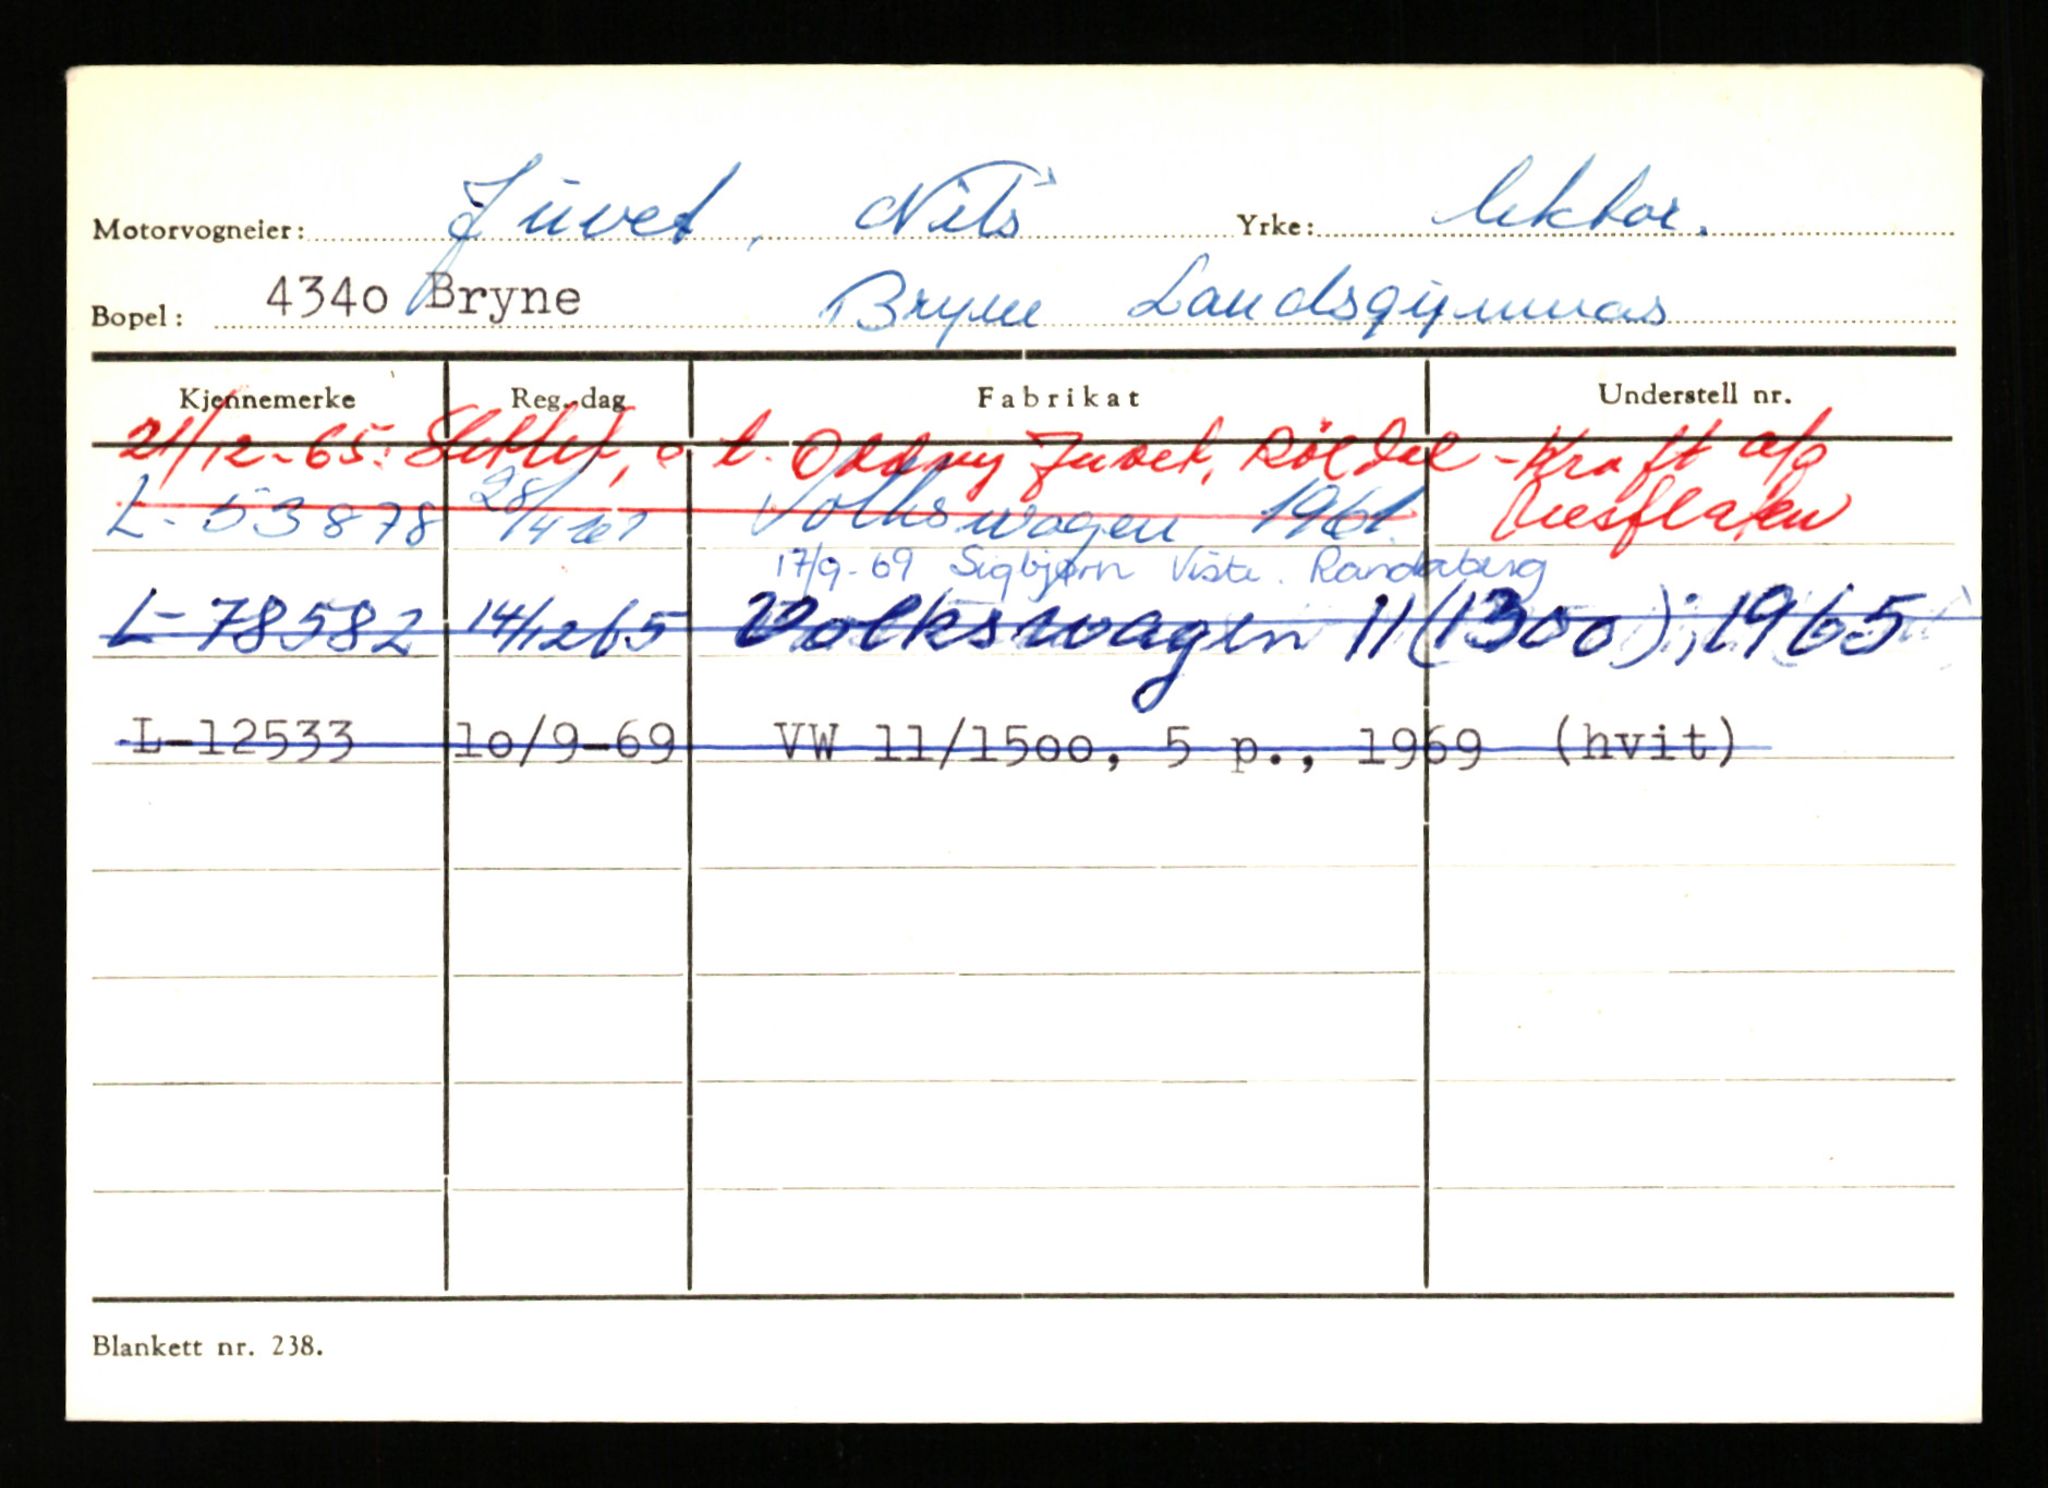 Motorvogneier: Juvet, Nils Yrke: lektor.
Bopel: 4340 Bryne Bryne Landsgymnas
Kjennemerke Reg.-dag Fabrikat Understell nr.
21/12-65: Slettet, o. t. Oddny Juvet, Röldal-Kraft a/s
Nesflaten
L-53878 28/4 61 Volkswagen 1961.
17/9-69 Sigbjørn Viste. Randaberg
L-78582 14/12 65 Volkswagen 11 (1300); 1965
L-12533 10/9-69 VW 11/1500, 5 p., 1969 (hvit)
Blankett nr. 238.